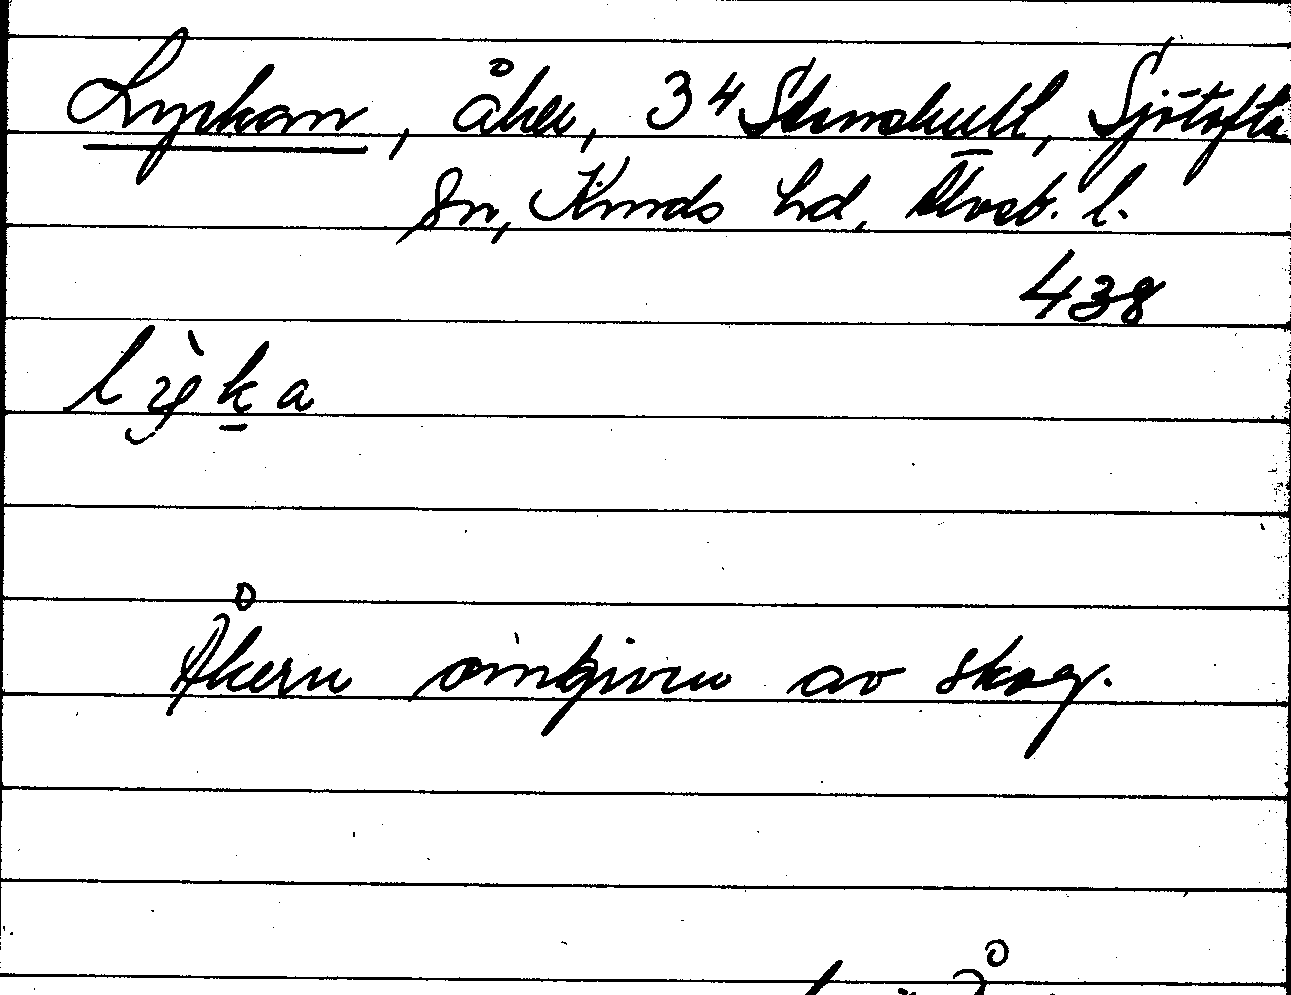 Lyckan, åker, 34 Stomskull, Sjötofta
sn, Kinds hd, Älvsb. l.
438
lỳka
Åkern omgiven av skog.